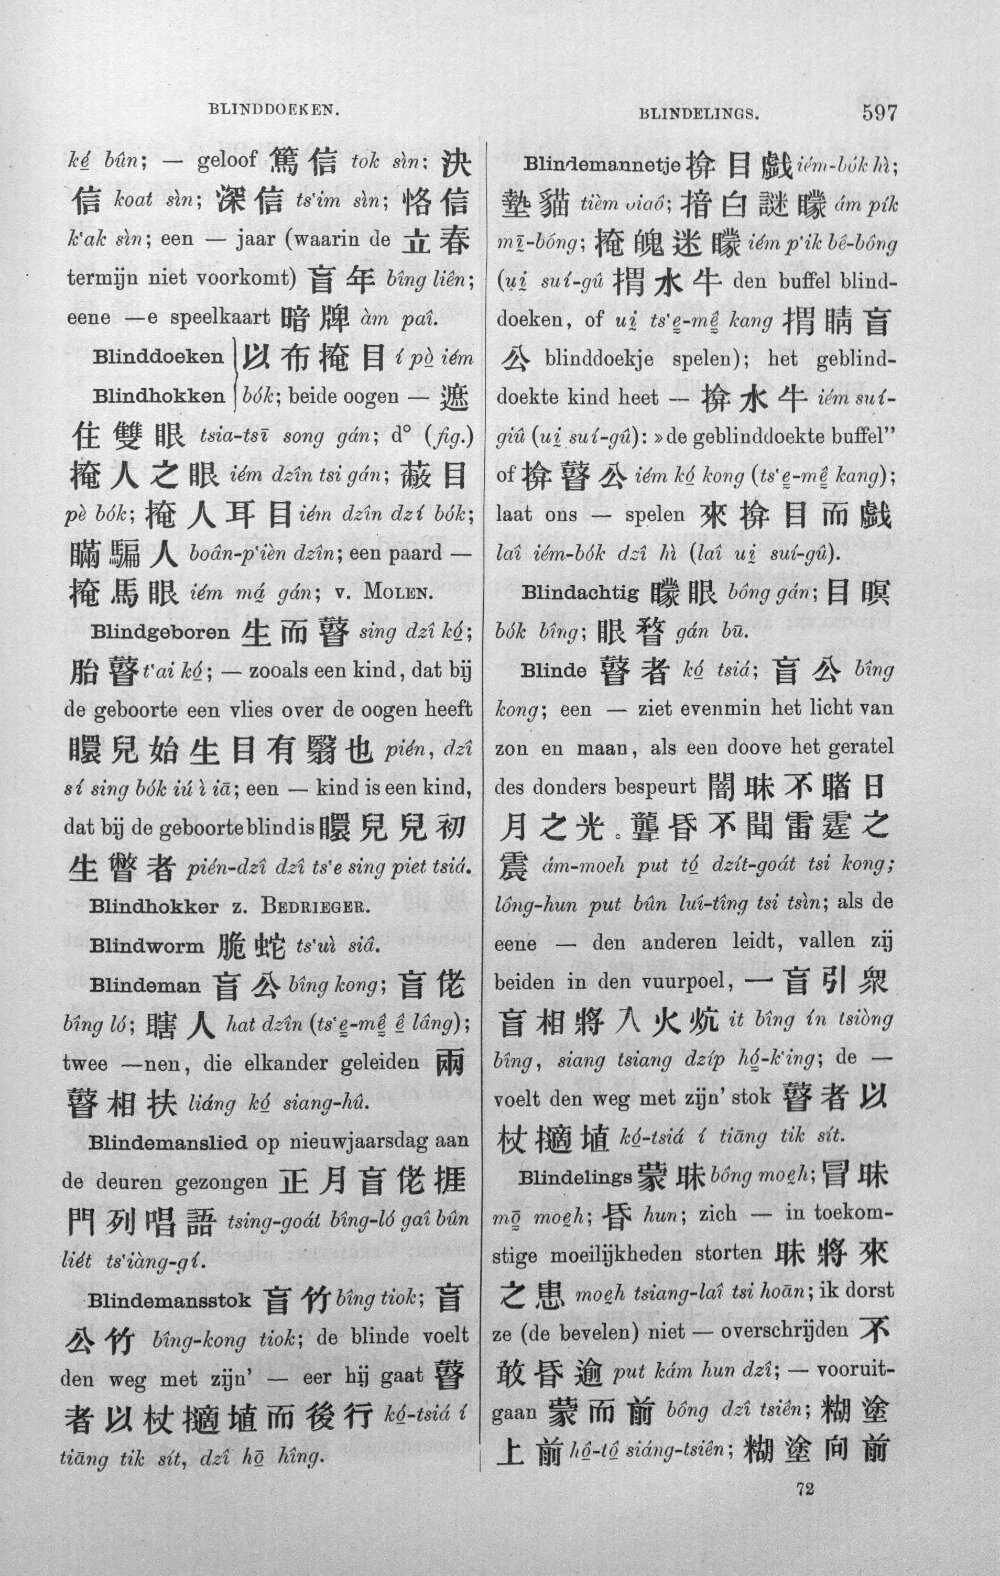 BLINDDOEKEN.
BLINDELINGS. 597
ké̱ bûn; — geloof 篤信 tok sìn; 決
信 koat sìn; 深信 tsʻim sìn; 恪信
kʻak sìn; een — jaar (waarin de 立春
termijn niet voorkomt) 盲年 bîng liên;
eene —e speelkaart 暗牌 àm paî.
Blinddoeken 以布掩目 í pò̱ iém
Blindhokken bók; beide oogen — 遮
住雙眼 tsia-tsī song gán; d° (fig.)
掩人之眼 iém dzîn tsi gán; 蔽目
pè bók; 掩人耳目 iém dzîn dzí bók;
瞞騙人 boân-pʻièn dzîn; een paard —
掩馬眼 iém má̱ gán; v. MOLEN.
Blindgeboren 生而瞽 sing dzî kó̱;
胎瞽 tʻai kó̱; — zooals een kind, dat bij
de geboorte een vlies over de oogen heeft
瞏兒始生目有翳也 pién, dzî
sí sing bók iú ì iā; een — kind is een kind,
dat bij de geboorte blind is 瞏兒兒初
生瞥者 pién-dzî dzî tsʻe sing piet tsiá.
Blindhokker z. BEDRIEGER.
Blindworm 脆蛇 tsʻuì siâ.
Blindeman 盲公 bîng kong; 盲佬
bîng ló; 瞎人 hat dzîn (tsʻe̱-mê̱ ê̱ lâng);
twee —nen, die elkander geleiden 兩
瞽相扶 liáng kó̱ siang-hû.
Blindemanslied op nieuwjaarsdag aan
de deuren gezongen 正月盲佬捱
門列唱語 tsing-goát bîng-ló gaî bûn
liét tsʻiàng-gí.
Blindemansstok 盲竹 bîng tiok; 盲
公竹 bîng-kong tiok; de blinde voelt
den weg met zijn' — eer hij gaat 瞽
者以杖擿埴而後行 kó̱-tsiá í
tiāng tik sít, dzî hō̱ hîng.
Blindemannetje 揜目戲 iém-bók hì;
墊貓 tièm biaô; 揞白謎矇 ám pík
mī̱-bóng; 掩魄迷矇 iém pʻik bê-bông
(ui̱ suí-gû 搨水牛 den buffel blind-
doeken, of ui̱ tsʻe̱-mê̱ kang 搨睛盲
公 blinddoekje spelen); het geblind-
doekte kind heet — 揜水牛 iém suí-
giû (ui̱ suí-gû): »de geblinddoekte buffel"
of 揜瞽公 iém kó̱ kong (tsʻe̱-mê̱ kang);
laat ons — spelen 來揜目而戲
laî iém-bók dzî hì (laî ui̱ suí-gû).
Blindachtig 矇眼 bông gán; 目瞑
bók bîng; 眼瞀 gán bū.
Blinde 瞽者 kó̱ tsiá; 盲公 bîng
kong; een — ziet evenmin het licht van
zon en maan, als een doove het geratel
des donders bespeurt 闇昧不睹日
月之光。聾昏不聞雷霆之
震 ám-moeh put tó̱ dzít-goát tsi kong;
lông-hun put bûn luî-tîng tsi tsìn; als de
eene — den anderen leidt, vallen zij
beiden in den vuurpoel, 一盲引衆
盲相將入火炕 it bîng ín tsiòng
bîng, siang tsiang dzíp hó̱-kʻing; de —
voelt den weg met zijn' stok 瞽者以
杖擿埴 kó̱-tsiá í tiāng tik sít.
Blindelings 蒙昧 bông moe̱h; 冒昧
mō̱ moe̱h; 昏 hun; zich — in toekom-
stige moeilijkheden storten 昧將來
之患 moe̱h tsiang-laî tsi hoān; ik dorst
ze (de bevelen) niet — overschrijden 不
敢昏逾 put kám hun dzî; — vooruit-
gaan 蒙而前 bông dzî tsiên; 糊塗
上前 hô̱-tô̱ siáng-tsiên; 糊塗向前
72